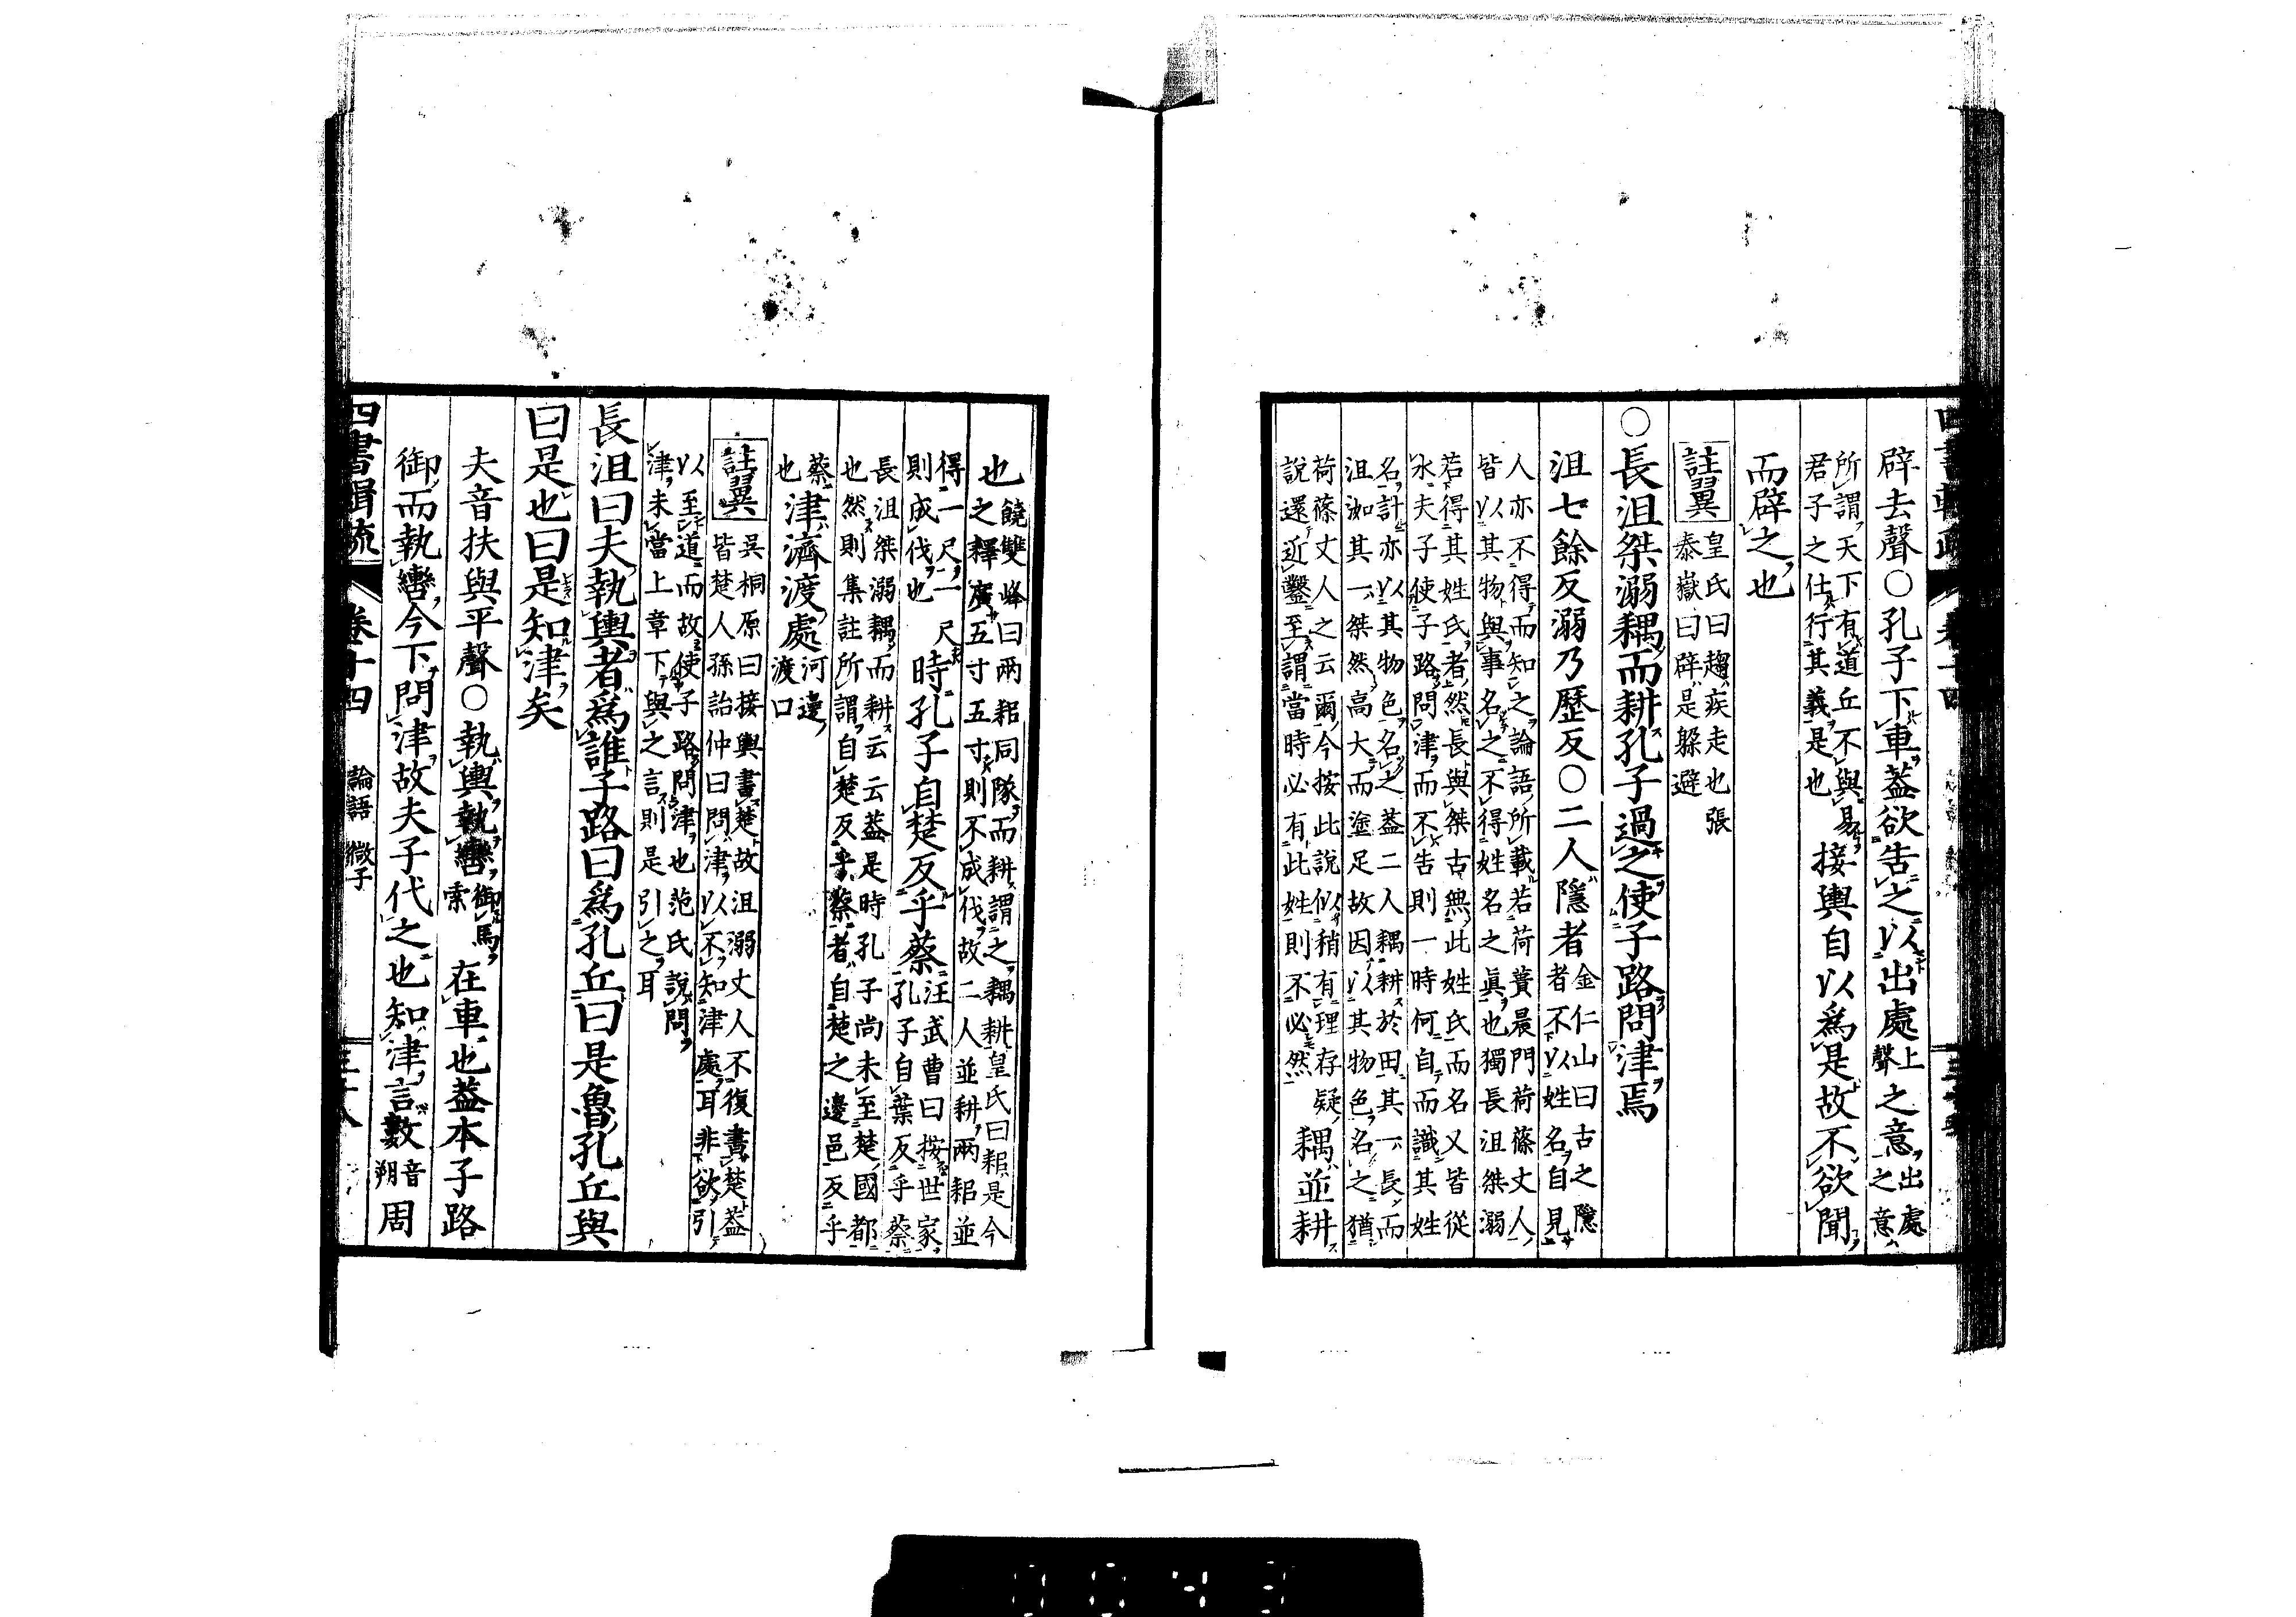 辟去聲○孔子下車蓋欲告之以出處上聲之意出處之意
所謂天下有道丘不與易
君子之仕行其義是也
接輿自以爲是故不欲聞
而辟之也
註翼
皇氏曰趨疾走也張
泰嶽曰辟是躱避
○長沮桀溺耦而耕孔子過之使子路問津焉
沮七餘反溺乃歷反○二人隱者
金仁山曰古之隱
者不以姓名自見
人亦不得而知之論語所載若荷蕢晨門荷蓧丈人
皆以其物與事名之不得姓名之眞也獨長沮桀溺
若得其姓氏者然長與桀古無此姓氏而名又皆從
水夫子使子路問津而不告則一時何自而識其姓
名計亦以其物色名之蓋二人耦耕於田其一長而
沮洳其一桀然高大而塗足故因以其物色名之猶
荷蓧丈人之云爾今按此說似稍有理存疑
說還近鑿至謂當時必有此姓則不必然
耦並耕
也
饒雙峰曰兩耜同隊而耕謂之耦耕皇氏曰耜是今
之釋廣五寸五寸則不成伐故二人並耕兩耜並
得一尺一尺
則成伐也
時孔子自楚反乎蔡
汪武曹曰按世家
孔子自葉反乎蔡
長沮桀溺耦而耕云云蓋是時孔子尚未至楚國都
也然則集註所謂自楚反乎蔡者自楚之邊邑反乎
蔡
也
津濟渡處
河邊
渡口
註翼
吳桐原曰接輿書楚故沮溺丈人不復書楚蓋
皆楚人孫詒仲曰問津以不知津處耳非欲引
以至道而故使子路問津也范氏說問
津未當上章下與之言則是引之耳
長沮曰夫執輿者爲誰子路曰爲孔丘曰是魯孔丘與
曰是也曰是知津矣
夫音扶與平聲○執輿執轡御馬索在車也蓋本子路
御而執轡今下問津故夫子代之也知津言數音朔周
四書輯疏 卷十四 論語 微子 三十八